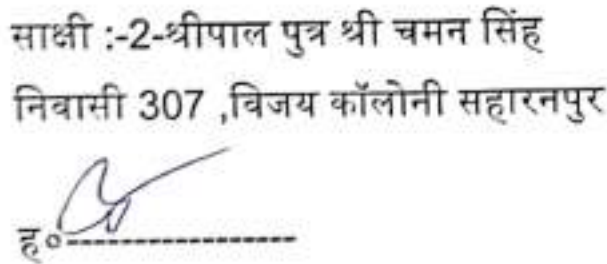 साक्षी :-2-श्रीपाल पुत्र श्री चमन सिंह
निवासी 307 ,विजय कॉलोनी सहारनपुर
ह०------------------